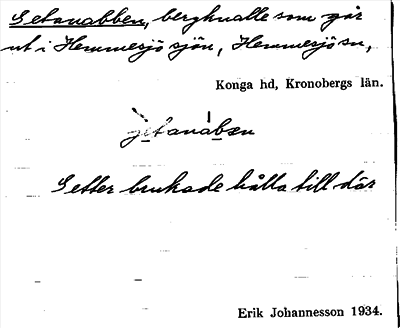 Getanabben, bergknalle som går
ut i Hemmesjö sjön, Hemmesjö sn,
Konga hd, Kronobergs län.
Getter brukade hålla till där
Erik Johannesson 1934.